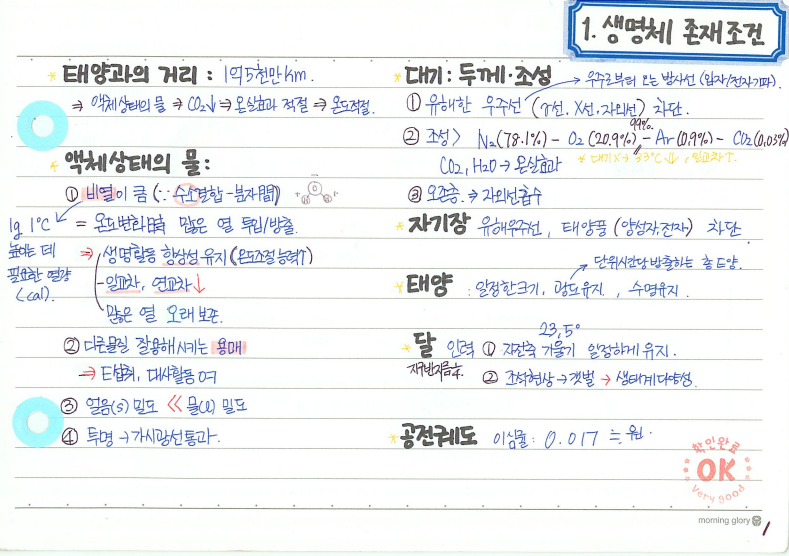 1. 생명체 존재조건
* 태양과의 거리 : 1억 5천만 km.
⇒ 액체상태의 물 ⇒ CO₂↓ ⇒ 온실효과 적절 ⇒ 온도적절.
* 액체상태의 물:
① 비열이 큼 (∵ 수소결합 - 분자間)
H O H
1g 1℃ 높이는 데 필요한 열량 (cal).
= 온도변화 많은 열 투입/방출.
⇒ 생명활동 항상성 유지 (온도조절능력↑)
- 일교차, 연교차↓
많은 열 오래 보존.
② 다른물질 잘용해시키는 용매
⇒ E섭취, 대사활동 참여
③ 얼음(s) 밀도 << 물(l) 밀도
④ 투명 → 가시광선통과.
대기 : 두께·조성
→ 우주로부터 오는 방사선 (입자/전자기파).
① 유해한 우주선 (γ선. X선. 자외선) 차단.
② 조성> N₂(78.1%) - O₂(20.9%) - Ar(0.9%) - CO₂(0.03%)
99%.
CO₂, H₂O → 온실효과
* 대기X → 33℃↓, 일교차↑.
③ 오존층. → 자외선흡수
* 자기장 유해우주선, 태양풍 (양성자,전자) 차단
→ 단위시간당 방출하는 총 E양.
* 태양 : 일정한크기, 광도유지, 수명유지.
23.5°
* 달 인력 ① 자전축 기울기 일정하게 유지.
지구반지름 ¼.
② 조석현상 → 갯벌 → 생태계다양성.
* 공전궤도 이심률 : 0.017 ≒ 원.
확인완료
OK
very good
morning glory
1